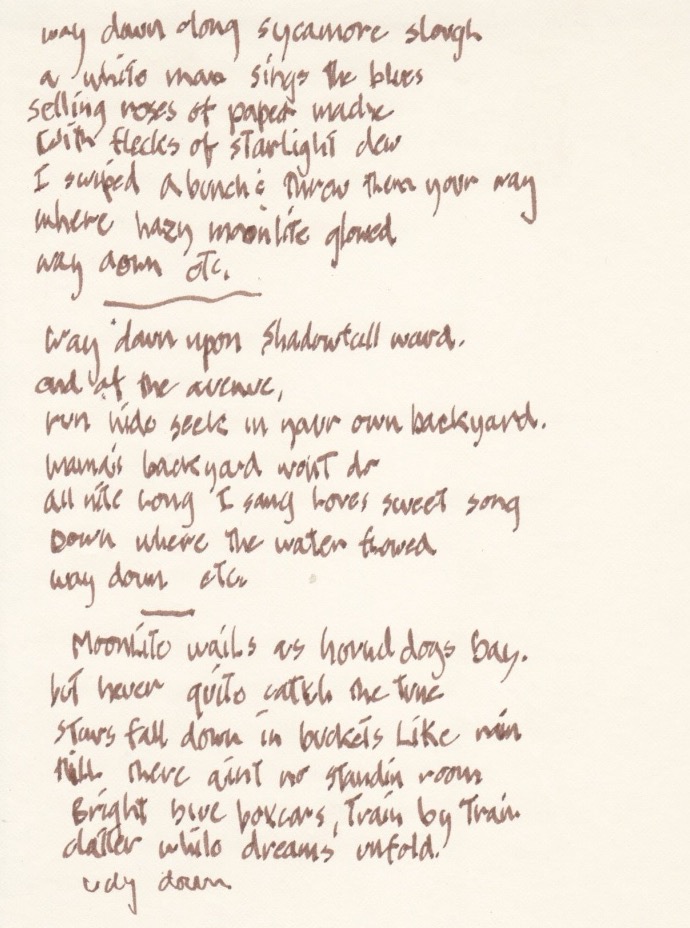 way down along sycamore slough
a white man sings the blues
selling roses of paper madre
with flecks of starlight dew
I swiped a bunch & threw them your way
where hazy moonlite glowed
way down etc.
way down upon Shadowfall ward.
end of the avenue,
run hide seek in your own backyard.
mama's backyard wont do
all nite Long I sang Loves sweet song
Down where the water flowed
way down etc.
MoonLite waiLs as hound dogs bay.
but never quite catch the tune
stars fall down in buckets Like rain
till there aint no standin room
Bright blue boxcars, Train by Train
clatter while dreams unfold.
way down